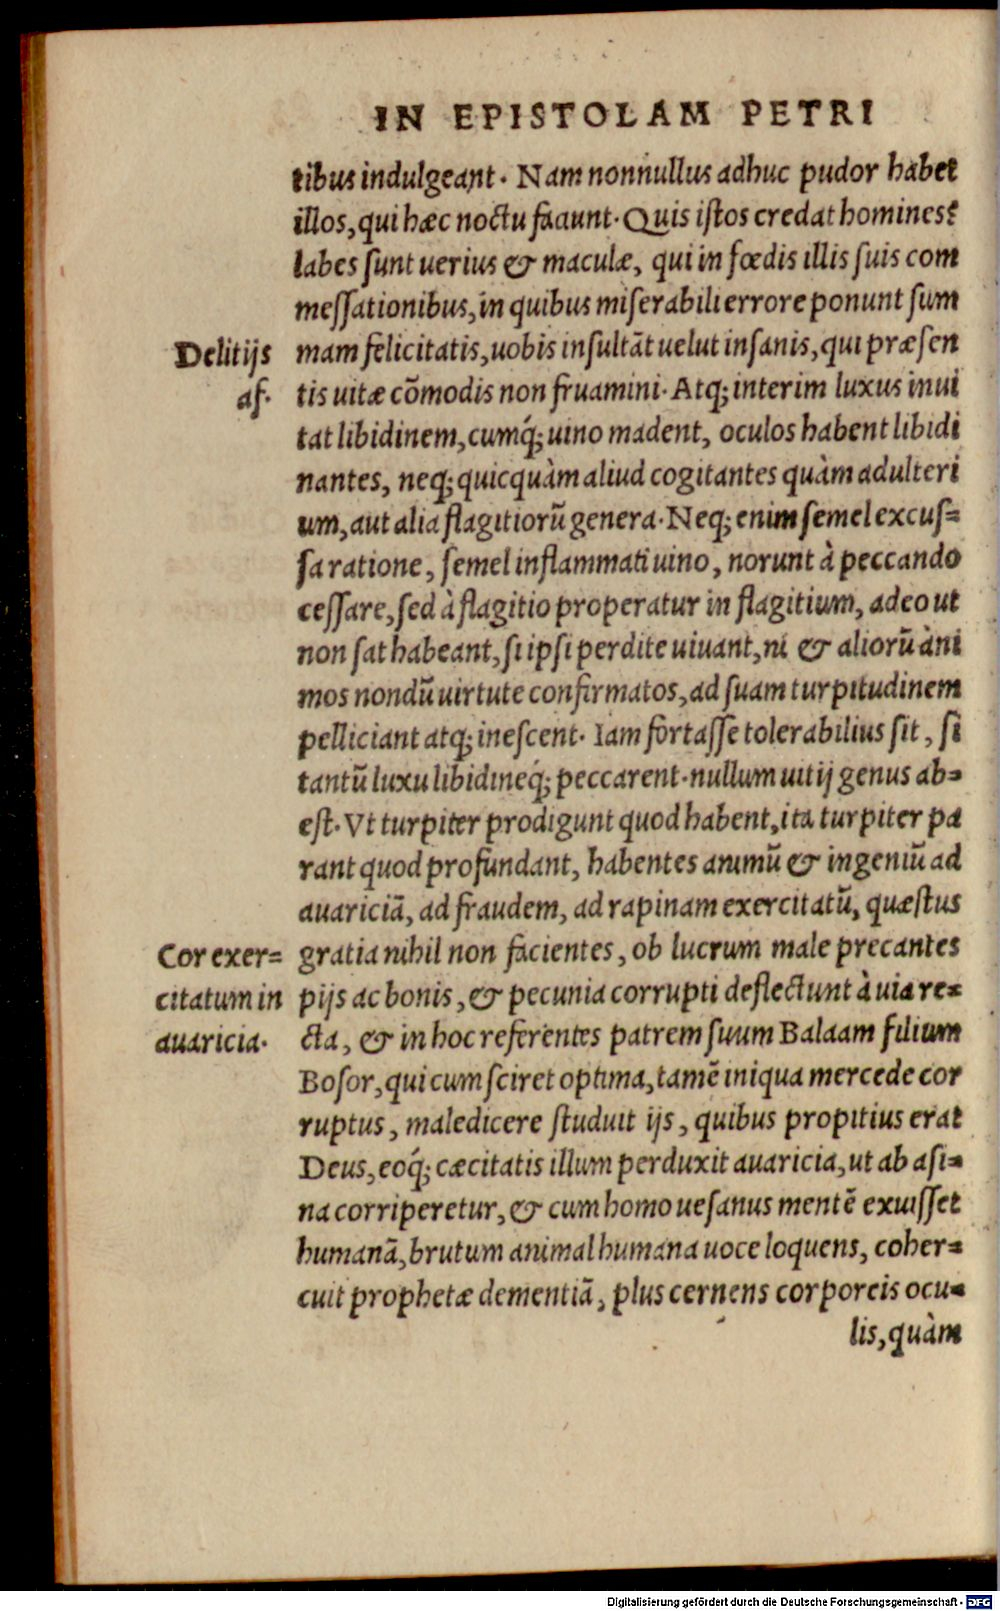 IN EPISTOLAM PETRI
tibus indulgeant. Nam nonnullus adhuc pudor habet
illos, qui hæc noctu faciunt. Quis istos credat homines?
labes sunt uerius & maculæ, qui in fœdis illis suis com
messationibus, in quibus miserabili errore ponunt sum
Delitijs
af.
mam felicitatis, uobis insultāt uelut insanis, qui præsen
tis uitæ cōmodis non fruamini. Atq; interim luxus inui
tat libidinem, cumq́; uino madent, oculos habent libidi
nantes, neq; quicquàm aliud cogitantes quàm adulteri
um, aut alia flagitiorū genera. Neq; enim semel excus=
sa ratione, semel inflammati uino, norunt à peccando
cessare, sed à flagitio properatur in flagitium, adeo ut
non sat habeant, si ipsi perdite uiuant, ni & aliorū àni
mos nondū uirtute confirmatos, ad suam turpitudinem
pelliciant atq; inescent. Iam fortasse tolerabilius sit, si
tantū luxu libidineq́; peccarent. nullum uitij genus ab=
est. Vt turpiter prodigunt quod habent, ita turpiter pa
rant quod profundant, habentes animū & ingeniū ad
auariciā, ad fraudem, ad rapinam exercitatū, quæstus
Cor exer=
citatum in
auaricia.
gratia nihil non facientes, ob lucrum male precantes
pijs ac bonis, & pecunia corrupti deflectunt à uia re=
cta, & in hoc referentes patrem suum Balaam filium
Bosor, qui cum sciret optima, tamē iniqua mercede cor
ruptus, maledicere studuit ijs, quibus propitius erat
Deus, eoq́; cæcitatis illum perduxit auaricia, ut ab asi=
na corriperetur, & cum homo uesanus mentē exuisset
humanā, brutum animal humana uoce loquens, coher=
cuit prophetæ dementiā, plus cernens corporeis ocu=
lis, quàm
Digitalisierung gefördert durch die Deutsche Forschungsgemeinschaft - DFG